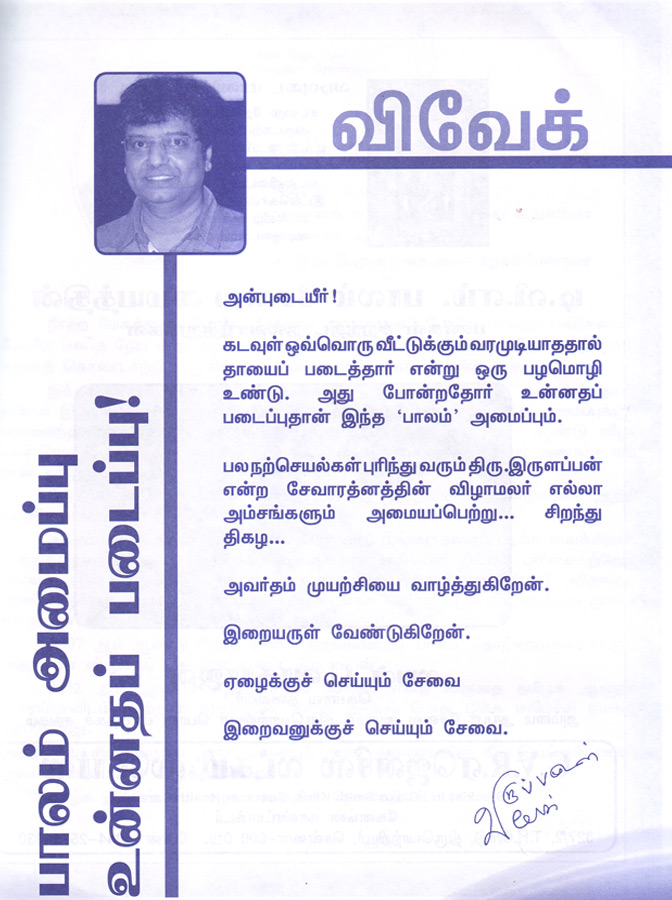 விவேக்
அன்புடையீர்!
கடவுள் ஒவ்வொரு வீட்டுக்கும் வரமுடியாததால்
தாயைப் படைத்தார் என்று ஒரு பழமொழி
உண்டு. அது போன்றதோர் உன்னதப்
படைப்புதான் இந்த ‘பாலம்’ அமைப்பும்.
பலநற்செயல்கள் புரிந்து வரும் திரு.இருளப்பன்
என்ற சேவாரத்னத்தின் விழாமலர் எல்லா
அம்சங்களும் அமையப்பெற்று... சிறந்து
திகழ...
அவர்தம் முயற்சியை வாழ்த்துகிறேன்.
இறையருள் வேண்டுகிறேன்.
ஏழைக்குச் செய்யும் சேவை
இறைவனுக்குச் செய்யும் சேவை.
பாலம் அமைப்பு
உன்னதப் படைப்பு!